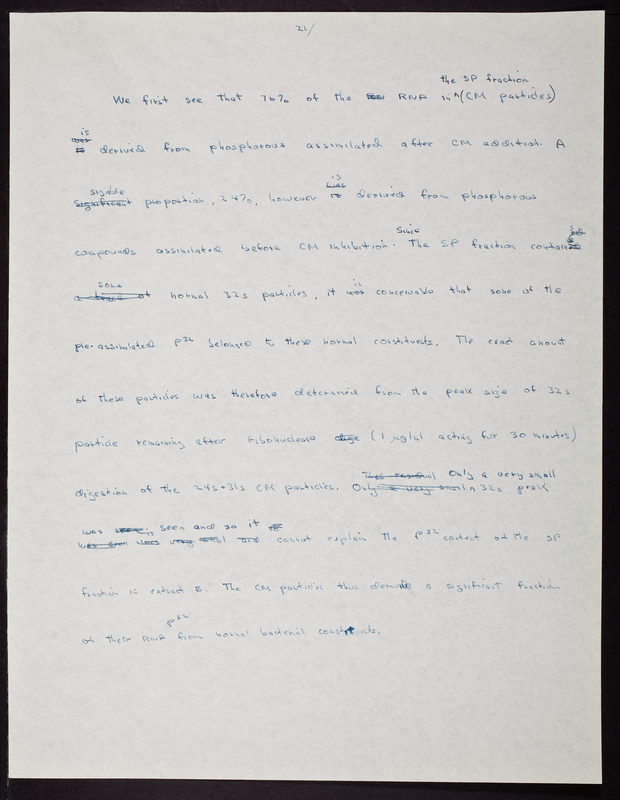 21/
the SP fraction
We first see that 76% of the RNA in ^(CM particles)
is
was
is derived from phosphorous assimilated after CM addition. A
sizable
significant proportion, 24%, however is derived from phosphorous
is
was
compounds assimilated before CM inhibition. Since The SP fraction contained
some
a trace of normal 32s particles, it was conceivable that some of the
is
pre-assimilated P32 belonged to these normal constituents. The exact amount
of these particles was therefore determined from the peak size of 32s
particle remaining after ribonuclease (1 µg/ml acting for 30 minutes)
This residual Only a very small
digestion of the 24s+31s CM particles. Only a very small ^ 32s peak
was seen and so it
was seen was very small and cannot explain the P32 content of the SP
fraction in extract B. The CM particles thus derive a significant fraction
P32
of their RNA from normal bacterial constituents.